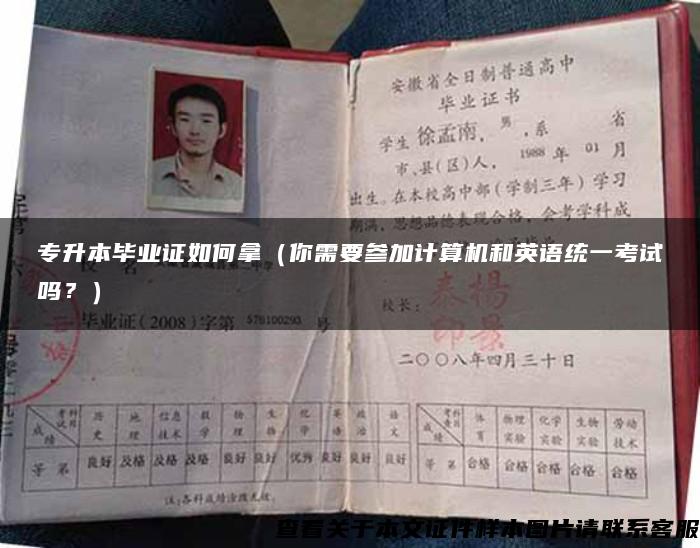 安徽省全日制普通高中
毕业证书
学生徐孟南，男，系 省
市、县(区)人，1988年01月
出生。在本校高中部(学制三年)学习
期满，思想品德表现合格，会考学科成
专升本毕业证如何拿（你需要参加计算机和英语统一考试
吗？）
校名
校长：
毕业证(2008)字第 578100293 号
二〇〇八年四月三十日
考试科目 历史 地理 信息技术 数学 物理 生物 化学 英语 政治 语文
成绩
等第 良好 及格 及格 及格 良好 良好 优秀 良好 良好 良好
考查科目 体育 物理实验 化学实验 生物实验 劳动技术
成绩
等第 合格 合格 合格 合格 合格
注:各科成绩涂改无效.
查看关于本文证件样本图片请联系客服